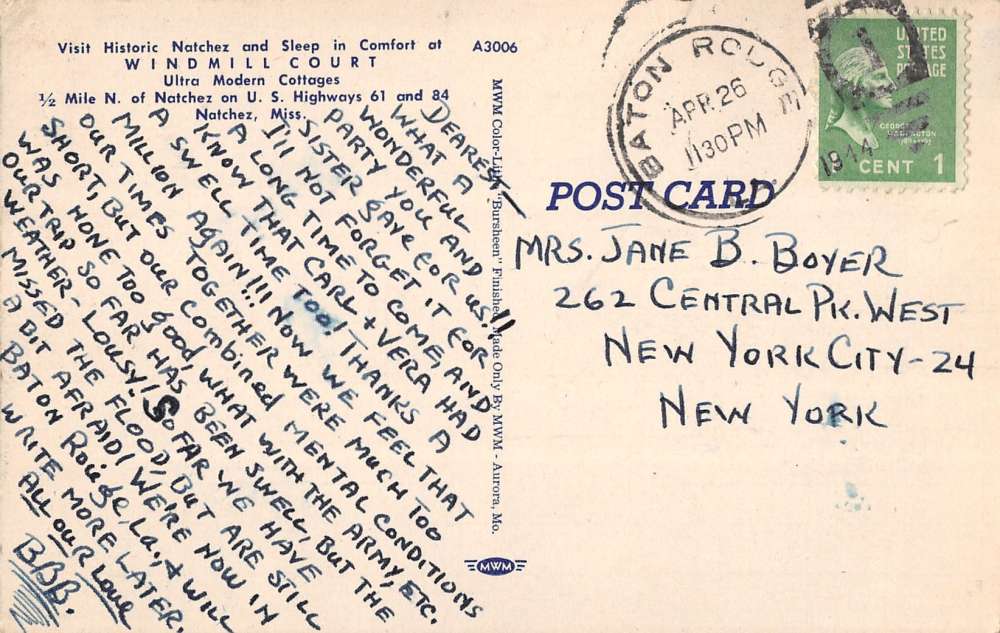 Visit Historic Natchez and Sleep in Comfort at
WINDMILL COURT
Ultra Modern Cottages
½ Mile N. of Natchez on U. S. Highways 61 and 84
Natchez, Miss.
A3006
DEAREST—
WHAT A
WONDERFUL
PARTY YOU AND
SISTER GAVE FOR US!!
I'LL NOT FORGET IT FOR
A LONG TIME TO COME, AND
KNOW THAT CARL + VERA HAD
A SWELL TIME TOO! THANKS A
MILLION AGAIN!!! NOW WE FEEL THAT
OUR TIMES TOGETHER WERE MUCH TOO
SHORT, BUT OUR COMBINED MENTAL CONDITIONS
WAS NONE TOO GOOD, WHAT WITH THE ARMY, ETC.
OUR TRIP SO FAR HAS BEEN SWELL, BUT THE
WEATHER - LOUSY! SO FAR WE HAVE
MISSED THE FLOOD, BUT ARE STILL
A BIT AFRAID! WE'RE NOW IN
BATON ROUGE, LA., + WILL
WRITE MORE LATER.
ALL OUR LOVE
BBB.
MWM Color-Litho "Bursheen" Finished Made Only By MWM - Aurora, Mo.
MWM
POST CARD
BATON ROUGE
APR 26
1130 PM
1944
UNITED
STATES
POSTAGE
GEORGE
WASHINGTON
CENT 1
MRS. JANE B. BOYER
262 CENTRAL PK. WEST
NEW YORK CITY - 24
NEW YORK